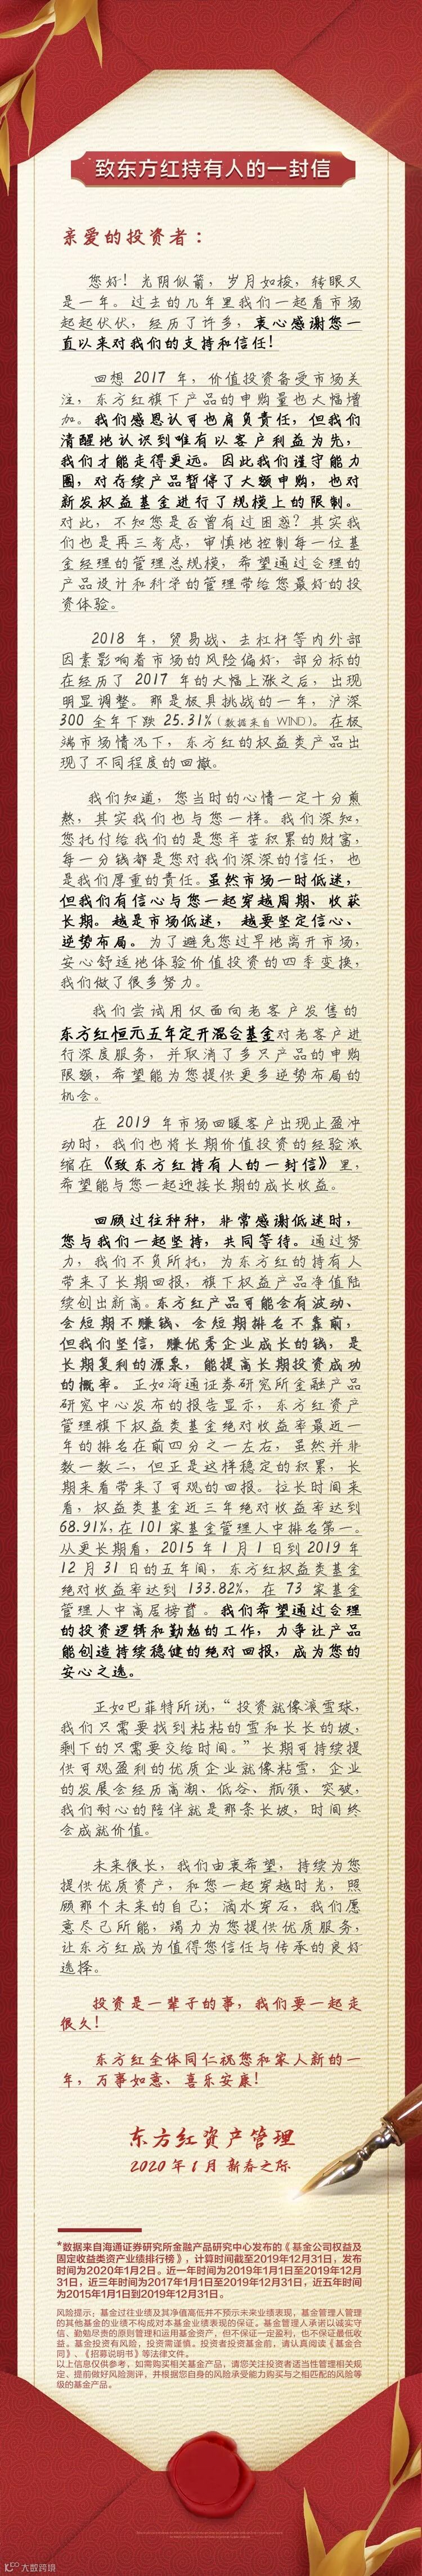 致东方红持有人的一封信
亲爱的投资者：
您好！光阴似箭，岁月如梭，转眼又
是一年。过去的几年里我们一起看市场
起起伏伏，经历了许多，衷心感谢您一
直以来对我们的支持和信任！
回想 2017 年，价值投资备受市场关
注，东方红旗下产品的申购量也大幅增
加。我们感恩认可也肩负责任，但我们
清醒地认识到唯有以客户利益为先，
我们才能走得更远。因此我们谨守能力
圈，对存续产品暂停了大额申购，也对
新发权益基金进行了规模上的限制。
对此，不知您是否曾有过困惑？其实我
们也是再三考虑，审慎地控制每一位基
金经理的管理总规模，希望通过合理的
产品设计和科学的管理带给您最好的投
资体验。
2018 年，贸易战、去杠杆等内外部
因素影响着市场的风险偏好，部分标的
在经历了 2017 年的大幅上涨之后，出现
明显调整。那是极具挑战的一年，沪深
300 全年下跌 25.31%（数据来自 WIND）。在极
端市场情况下，东方红的权益类产品出
现了不同程度的回撤。
我们知道，您当时的心情一定十分煎
熬，其实我们也与您一样。我们深知，
您托付给我们的是您辛苦积累的财富，
每一分钱都是您对我们深深的信任，也
是我们厚重的责任。虽然市场一时低迷，
但我们有信心与您一起穿越周期、收获
长期。越是市场低迷，越要坚定信心、
逆势布局。为了避免您过早地离开市场，
安心舒适地体验价值投资的四季变换，
我们做了很多努力。
我们尝试用仅面向老客户发售的
东方红恒元五年定开混合基金对老客户进
行深度服务，并取消了多只产品的申购
限额，希望能为您提供更多逆势布局的
机会。
在 2019 年市场回暖客户出现止盈冲
动时，我们也将长期价值投资的经验浓
缩在《致东方红持有人的一封信》里，
希望能与您一起迎接长期的成长收益。
回顾过往种种，非常感谢低迷时，
您与我们一起坚持，共同等待。通过努
力，我们不负所托，为东方红的持有人
带来了长期回报，旗下权益产品净值陆
续创出新高。东方红产品可能会有波动、
会短期不赚钱、会短期排名不靠前，
但我们坚信，赚优秀企业成长的钱，是
长期复利的源泉，能提高长期投资成功
的概率。正如海通证券研究所金融产品
研究中心发布的报告显示，东方红资产
管理旗下权益类基金绝对收益率最近一
年的排名在前四分之一左右，虽然并非
数一数二，但正是这样稳定的积累，长
期来看带来了可观的回报。拉长时间来
看，权益类基金近三年绝对收益率达到
68.91%，在 101 家基金管理人中排名第一。
从更长期看，2015 年 1 月 1 日到 2019 年
12 月 31 日的五年间，东方红权益类基金
绝对收益率达到 133.82%，在 73 家基金
管理人中高居榜首*。我们希望通过合理
的投资逻辑和勤勉的工作，力争让产品
能创造持续稳健的绝对回报，成为您的
安心之选。
正如巴菲特所说，“投资就像滚雪球，
我们只需要找到粘粘的雪和长长的坡，
剩下的只需要交给时间。”长期可持续提
供可观盈利的优质企业就像粘雪，企业
的发展会经历高潮、低谷、瓶颈、突破，
我们耐心的陪伴就是那条长坡，时间终
会成就价值。
未来很长，我们由衷希望，持续为您
提供优质资产，和您一起穿越时光，照
顾那个未来的自己；滴水穿石，我们愿
意尽己所能，竭力为您提供优质服务，
让东方红成为值得您信任与传承的良好
选择。
投资是一辈子的事，我们要一起走
很久！
东方红全体同仁祝您和家人新的一
年，万事如意、喜乐安康！
东方红资产管理
2020 年 1 月 新春之际
*数据来自海通证券研究所金融产品研究中心发布的《基金公司权益及
固定收益类资产业绩排行榜》，计算时间截至2019年12月31日，发布
时间为2020年1月2日。近一年时间为2019年1月1日至2019年12月
31日，近三年时间为2017年1月1日至2019年12月31日，近五年时间
为2015年1月1日到2019年12月31日。
风险提示：基金过往业绩及其净值高低并不预示未来业绩表现，基金管理人管理
的其他基金的业绩不构成对本基金业绩表现的保证。基金管理人承诺以诚实守
信、勤勉尽责的原则管理和运用基金资产，但不保证一定盈利，也不保证最低收
益。基金投资有风险，投资需谨慎。投资者投资基金前，请认真阅读《基金合
同》、《招募说明书》等法律文件。
以上信息仅供参考，如需购买相关基金产品，请您关注投资者适当性管理相关规
定、提前做好风险测评，并根据您自身的风险承受能力购买与之相匹配的风险等
级的基金产品。
大数跨境